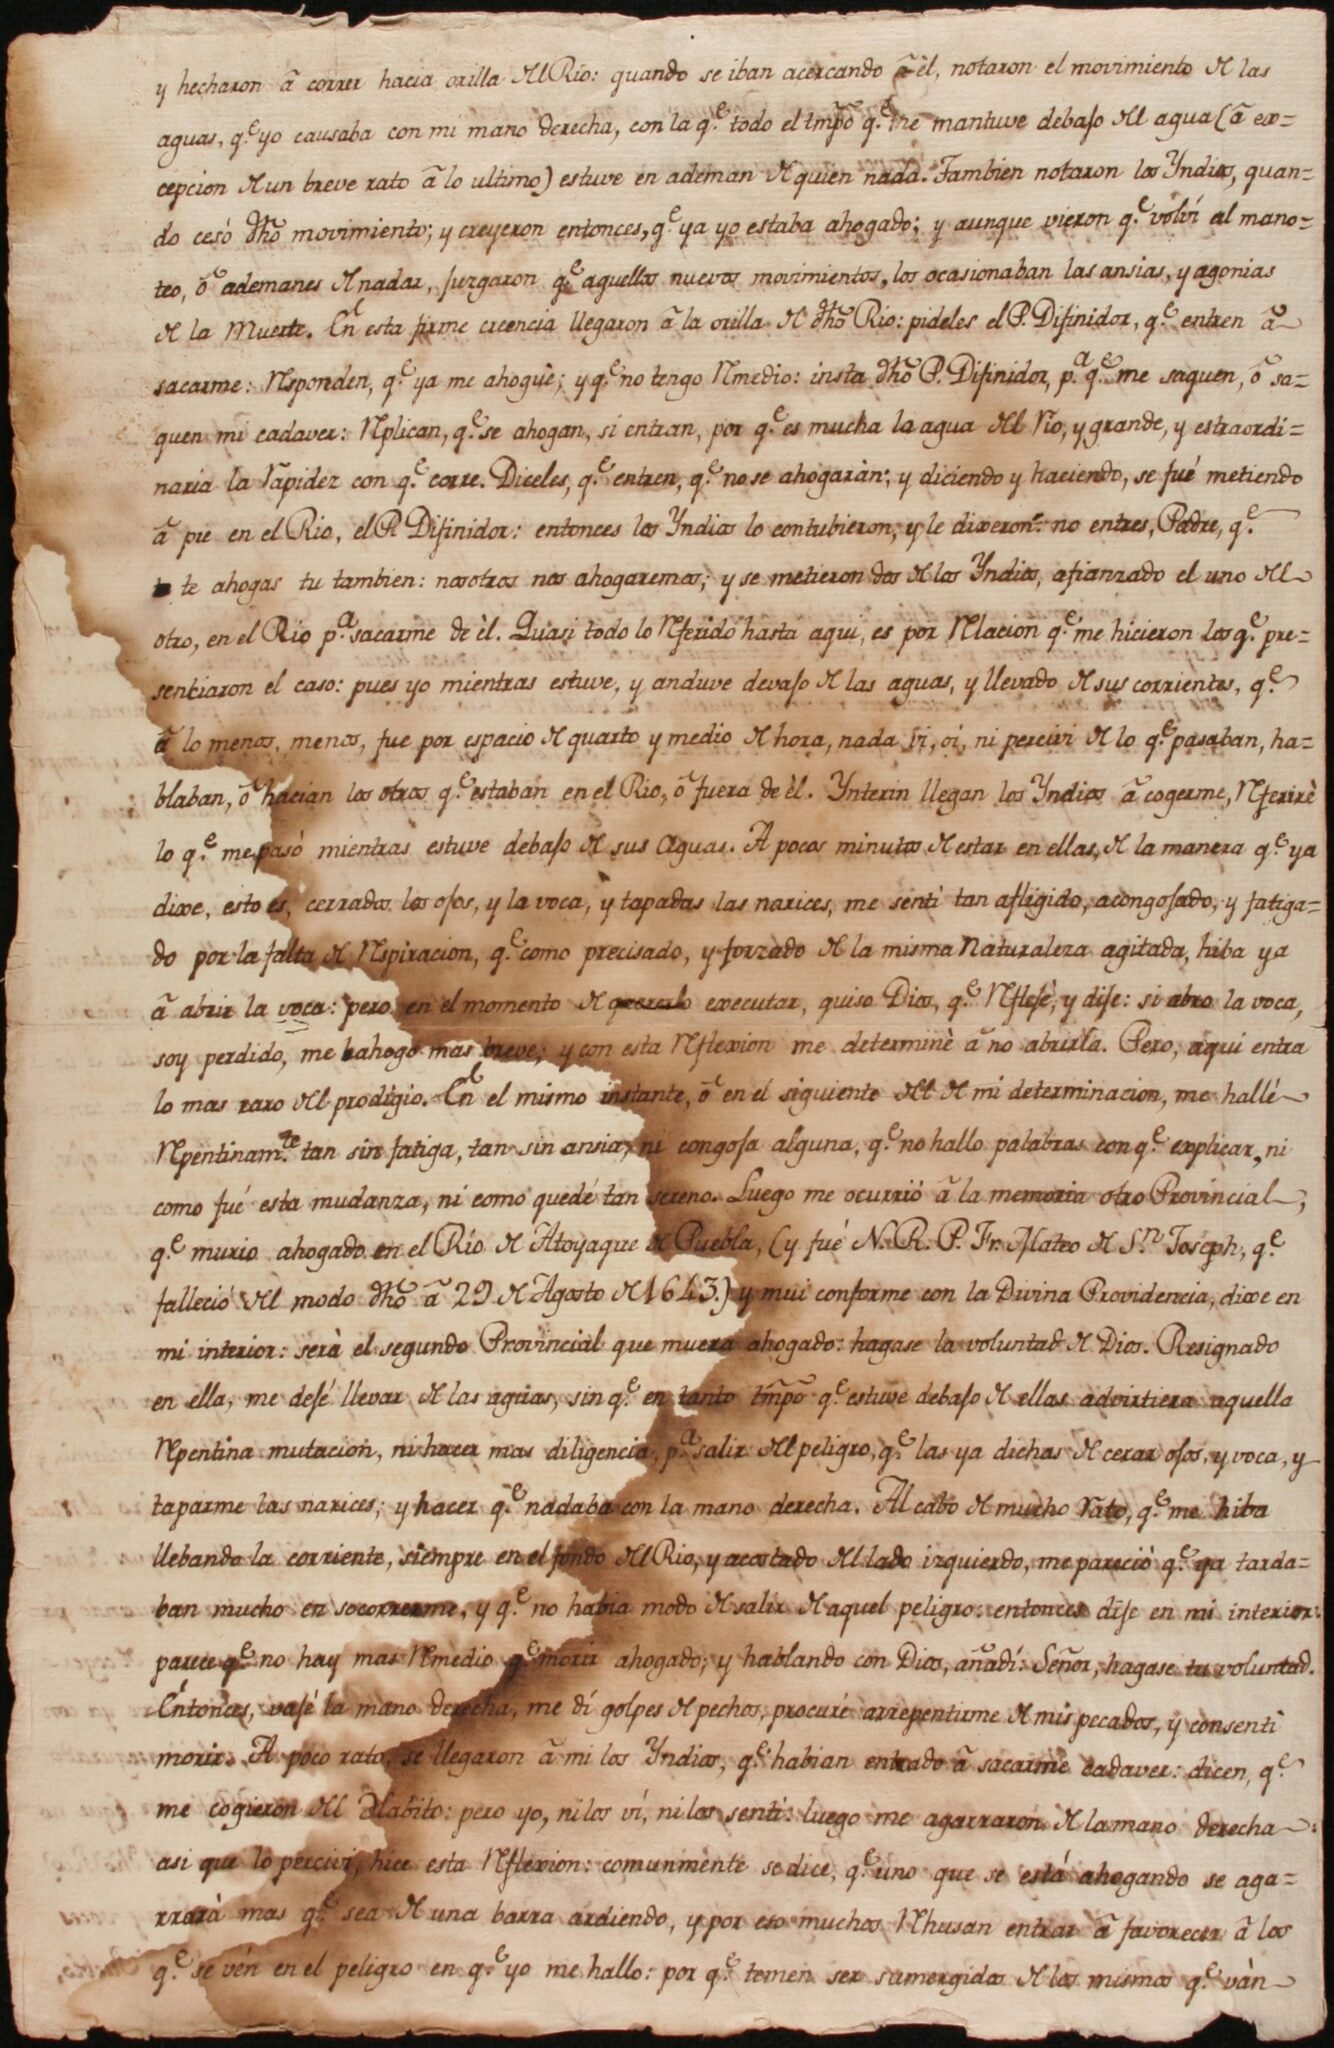 y hecharon â correr hacia orilla del Rio: quando se iban acercando â èl, notaron el movimiento de las
aguas, q.e yo causaba con mi mano derecha, con la q.e todo el tmpõ q.e me mantuve debajo del agua (â ex=
cepcion de un breve rato â lo ultimo) estuve en ademan de quien nada. Tambien notaron los Yndios, quan=
do cesó dhõ movimiento; y creyeron entonces, q.e ya yo estaba ahogado; y aunque vieron q.e volví al mano=
teo, ô ademanes de nadar, juzgaron q.e aquellos nuevos movimientos, los ocasionaban las ansias, y agonias
de la Muerte. En esta firme creencia llegaron â la orilla de dhõ Rio: pideles el P. Difinidor, q.e entren â
sacarme: Responden, q.e ya me ahoguè; y q.e no tengo Remedio: insta dhõ P. Difinidor, p.a q.e me saquen, ô sa=
quen mi cadaver: Replican, q.e se ahogan, si entran, por q.e es mucha la agua del Rio, y grande, y estraordi=
naria la Rapidez con q.e corre. Diceles, q.e entren, q.e no se ahogaràn; y diciendo y haciendo, se fué metiendo
â pie en el Rio, el P. Difinidor: entonces los Yndios lo contubieron, y le dixeron: no entres, Padre, q.e
te ahogas tu tambien: nosotros nos ahogaremos; y se metieron dos de los Yndios, afianzado el uno del
otro, en el Rio p.a sacarme de èl. Quasi todo lo Referido hasta aqui, es por Relacion q.e me hicieron los q.e pre=
senciaron el caso: pues yo mientras estuve, y anduve devajo de las aguas, y llevado de sus corrientes, q.e
â lo menos, menos, fue por espacio de quarto y medio de hora, nada vi, oí, ni percivi de lo q.e pasaban, ha=
blaban, ô hacian los otros q.e estaban en el Rio, ô fuera de èl. Ynterin llegan los Yndios â cogerme, Referirè
lo q.e me pasó mientras estuve debajo de sus Aguas. A pocos minutos de estar en ellas, de la manera q.e ya
dixe, esto es, cerrados los ojos, y la voca, y tapadas las narices, me sentí tan afligido, acongojado, y fatiga=
do por la falta de Respiracion, q.e como precisado, y forzado de la misma Naturaleza agitada, hiba ya
â abrir la voca: pero en el momento de quererlo executar, quiso Dios, q.e Reflejè, y dije: si abro la voca,
soy perdido, me ahogo mas breve; y con esta Reflexion me determinè â no abrirla. Pero, aqui entra
lo mas raro del prodigio. En el mismo instante, ô en el siguiente del de mi determinacion, me hallé
Repentinam.te tan sin fatiga, tan sin ansia, ni congoja alguna, q.e no hallo palabras con q.e explicar, ni
como fué esta mudanza, ni como quedé tan sereno. Luego me ocurriò â la memoria otro Provincial,
q.e murio ahogado en el Rio de Atoyaque de Puebla, (y fué N. R. P. Fr. Mateo de S.n Joseph, q.e
falleció del modo dhõ â 29 de Agosto de 1643.) y mui conforme con la Divina Providencia, dixe en
mi interior: serà el segundo Provincial que muera ahogado: hagase la voluntad de Dios. Resignado
en ella, me dejé llevar de las aguas, sin q.e en tanto tmpõ q.e estuve debajo de ellas advirtiera aquella
Repentina mutacion, ni hacer mas diligencia p.a salir del peligro, q.e las ya dichas de cerar ojos, y voca, y
taparme las narices; y hacer q.e nadaba con la mano derecha. Al cabo de mucho Rato, q.e me hiba
llebando la corriente, siempre en el fondo del Rio, y acostado del lado izquierdo, me pareciò q.e ya tarda=
ban mucho en socorrerme, y q.e no habia modo de salir de aquel peligro: entonces dije en mi interior:
parece q.e no hay mas Remedio q.e morir ahogado; y hablando con Dios, añadí: Señor, hagase tu voluntad.
Entonces, vajé la mano derecha, me dí golpes de pechos, procuré arrepentirme de mis pecados, y consentì
morir. A poco rato, se llegaron â mi los Yndios, q.e habian entrado â sacarme cadaver: dicen, q.e
me cogieron del Habito: pero yo, ni los ví, ni los sentì: luego me agarraron de la mano derecha:
asi que lo perciví, hice esta Reflexion: comunmente se dice, q.e uno que se está ahogando se aga=
rrarà mas q.e sea de una barra ardiendo, y por eso muchos Rehusan entrar â favorecer â los
q.e se vén en el peligro en q.e yo me hallo: por q.e temen ser sumergidos de los mismos q.e vàn